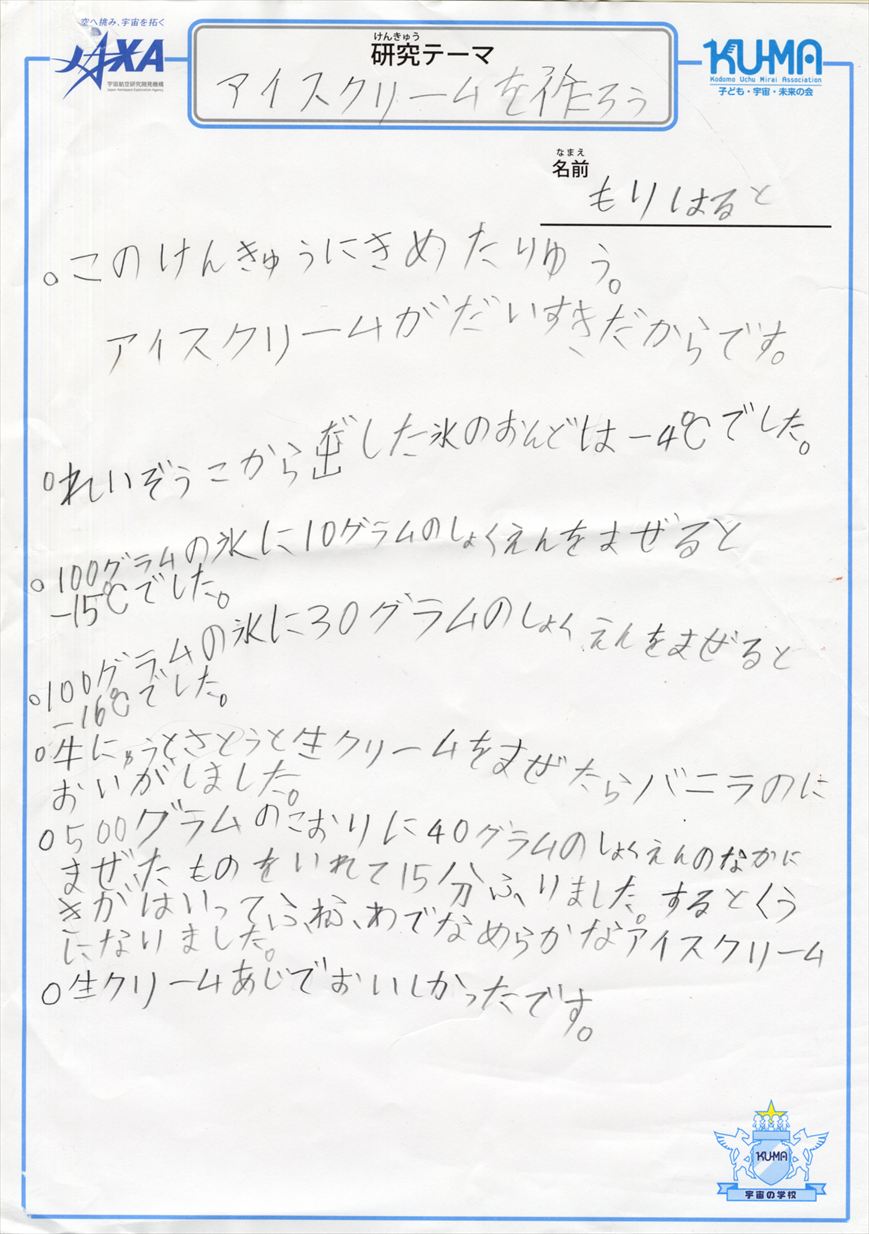 空へ挑み、宇宙を拓く
JAXA
宇宙航空研究開発機構
Japan Aerospace Exploration Agency
けんきゅう
研究テーマ
アイスクリームを作ろう
KU-MA
Kodomo Uchu Mirai Association
子ども・宇宙・未来の会
なまえ
名前
もりはると
○このけんきゅうにきめたりゆう。
アイスクリームがだいすきだからです。
○れいぞうこから出だした氷のおんどは-4℃でした。
○100グラムの氷に10グラムのしょくえんをまぜると
-15℃でした。
○100グラムの氷に30グラムのしょくえんをまぜると
-16℃でした。
○牛にゅうとさとうと生クリームをまぜたらバニラのに
おいがしました。
○500グラムのこおりに40グラムのしょくえんのなかに
まぜたものをいれて15分ふりました。するとくう
きがはいってふわふわでなめらかなアイスクリーム
になりました。
○生クリームあじでおいしかったです。
KU-MA
宇宙の学校